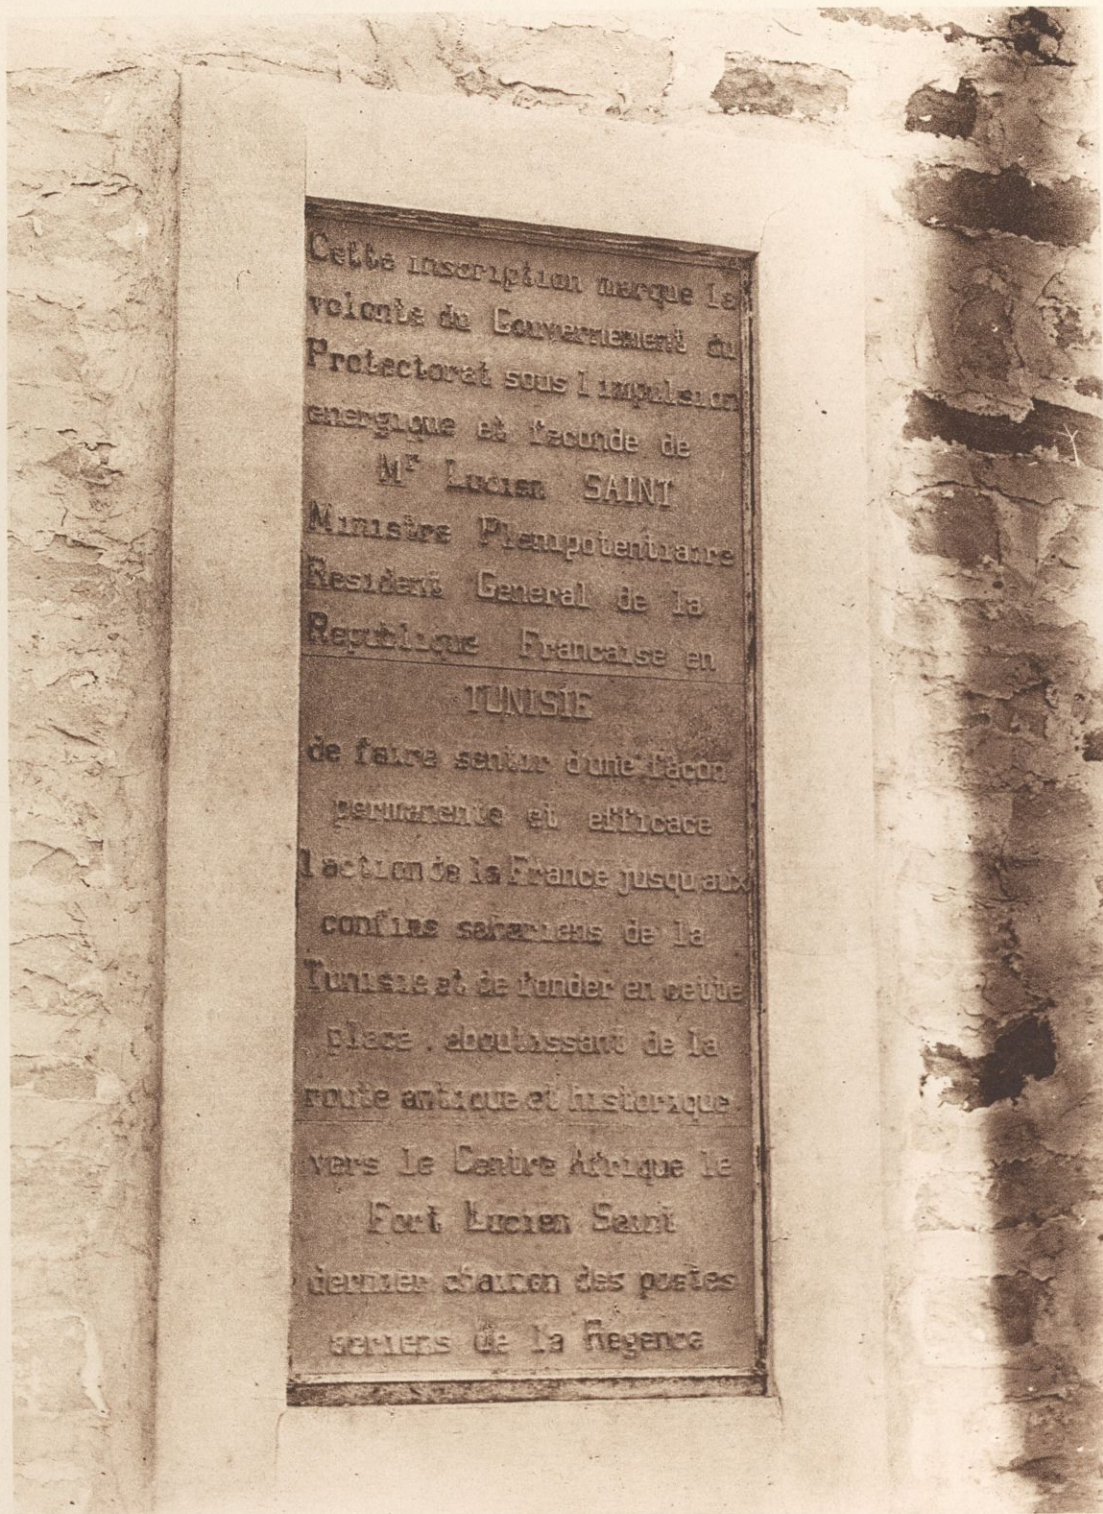 Cette inscription marque la
volonte du Gouvernement du
Protectorat sous l'impulsion
energique et feconde de
Mr Lucien SAINT
Ministre Plenipotentiaire
Resident General de la
Republique Francaise en
TUNISIE
de faire sentir d'une façon
permanente et efficace
l'action de la France jusqu'aux
confins sahariens de la
Tunisie et de fonder en cette
place, aboutissant de la
route antique et historique
vers le Centre Afrique le
Fort Lucien Saint
dernier chainon des postes
aeriens de la Regence